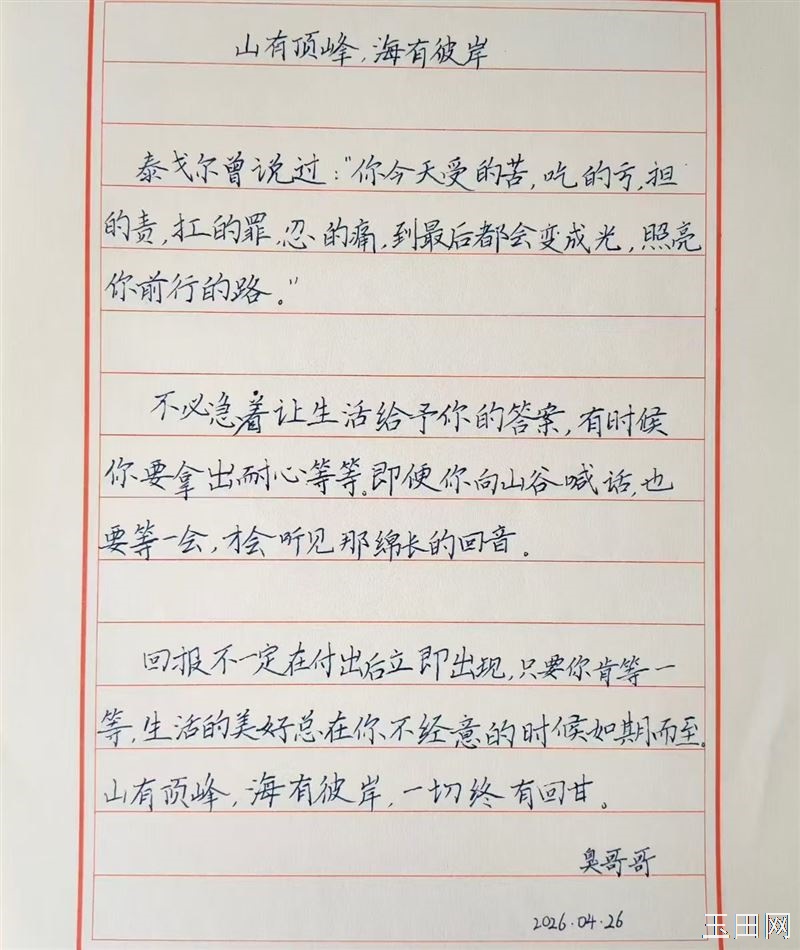 山有顶峰,海有彼岸
泰戈尔曾说过:"你今天受的苦,吃的亏,担
的责,扛的罪,忍的痛,到最后都会变成光,照亮
你前行的路。"
不必急着让生活给予你的答案,有时候
你要拿出耐心等等。即便你向山谷喊话,也
要等一会,才会听见那绵长的回音。
回报不一定在付出后立即出现,只要你肯等一
等,生活的美好总在你不经意的时候如期而至。
山有顶峰,海有彼岸,一切终有回甘。
臭哥哥
2026.04.26
玉田网